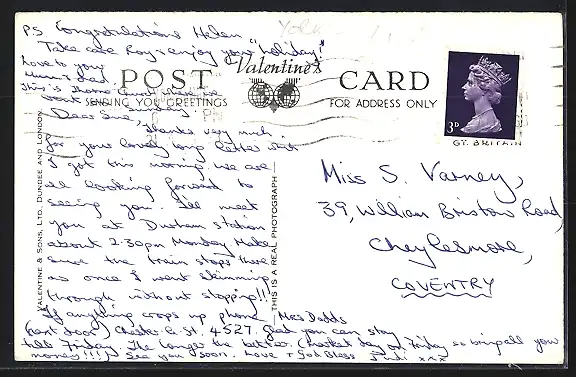 PS Congratulations Helen
Take care Roy & enjoy your "holiday!"
Love to your
Mum & dad.
This is the church where we
went on Sunday.
POST
Valentine's
CARD
SENDING YOU GREETINGS
FOR ADDRESS ONLY
3D
GT. BRITAIN
Dear Sue,
Thanks very much
for your lovely long letter which
I got this morning. We are
all looking forward to
seeing you. I'll meet
you at Durham station
about 2.30pm Monday. Make
sure the train stops there
as once I went skimming
through without stopping!!
If anything crops up phone Mrs Dodds
(next door) Chester-le-St. 4527. Glad you can stay
till Friday. The longer the better. (Market day on Friday so bring all your
money!!!) See you soon. Love & God Bless Judi xxx
VALENTINE & SONS, LTD. DUNDEE AND LONDON
THIS IS A REAL PHOTOGRAPH
Miss S. Varney,
39, William Bristow Road,
Cheylesmore,
COVENTRY